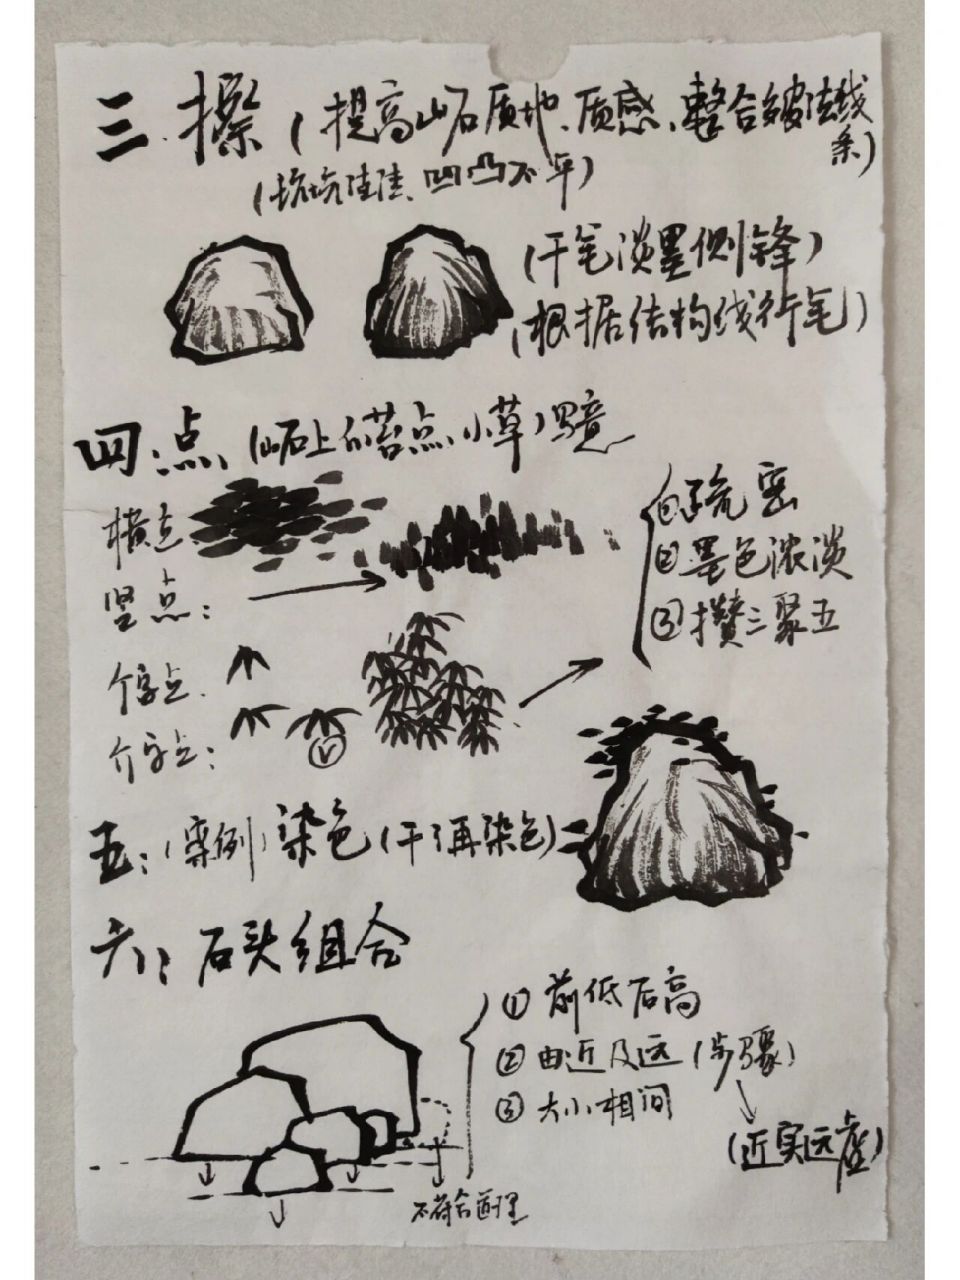 三.擦(提高山石质地、质感、整合皴法线条)
(坑坑洼洼、凹凸不平)
(干笔淡墨侧锋)
(根据结构线行笔)
四:点、(山石上的苔点、小草)写意
横点
竖点:
个字点.
介字点:
①疏密
②墨色浓淡
③攒三聚五
五:(案例)染色(干了再染色)
六:石头组合
①前低后高
②由近及远(步骤)
③大小相间
(近实远虚)
不符合道理